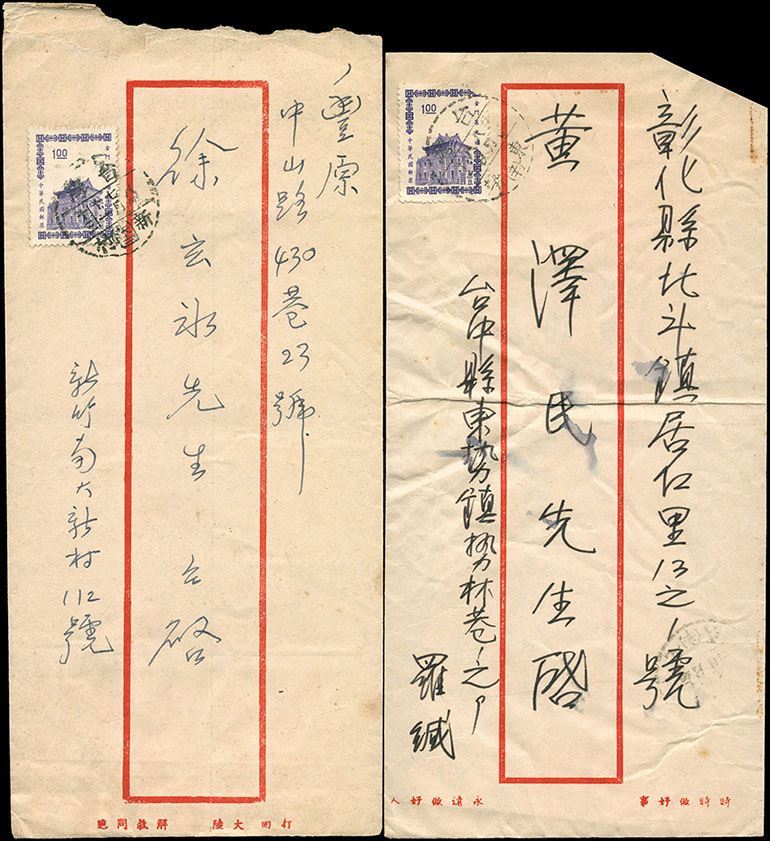 豐原
中山路430巷23號
徐玄冰先生 台啟
新竹南大新村112號
1.00
中華民國郵票
打回大陸 解救同胞
彰化縣北斗鎮居仁里13之1號
黃澤民先生啟
台中縣東勢鎮勢林巷1之
羅緘
1.00
中華民國郵票
時時做好事
永遠做好人